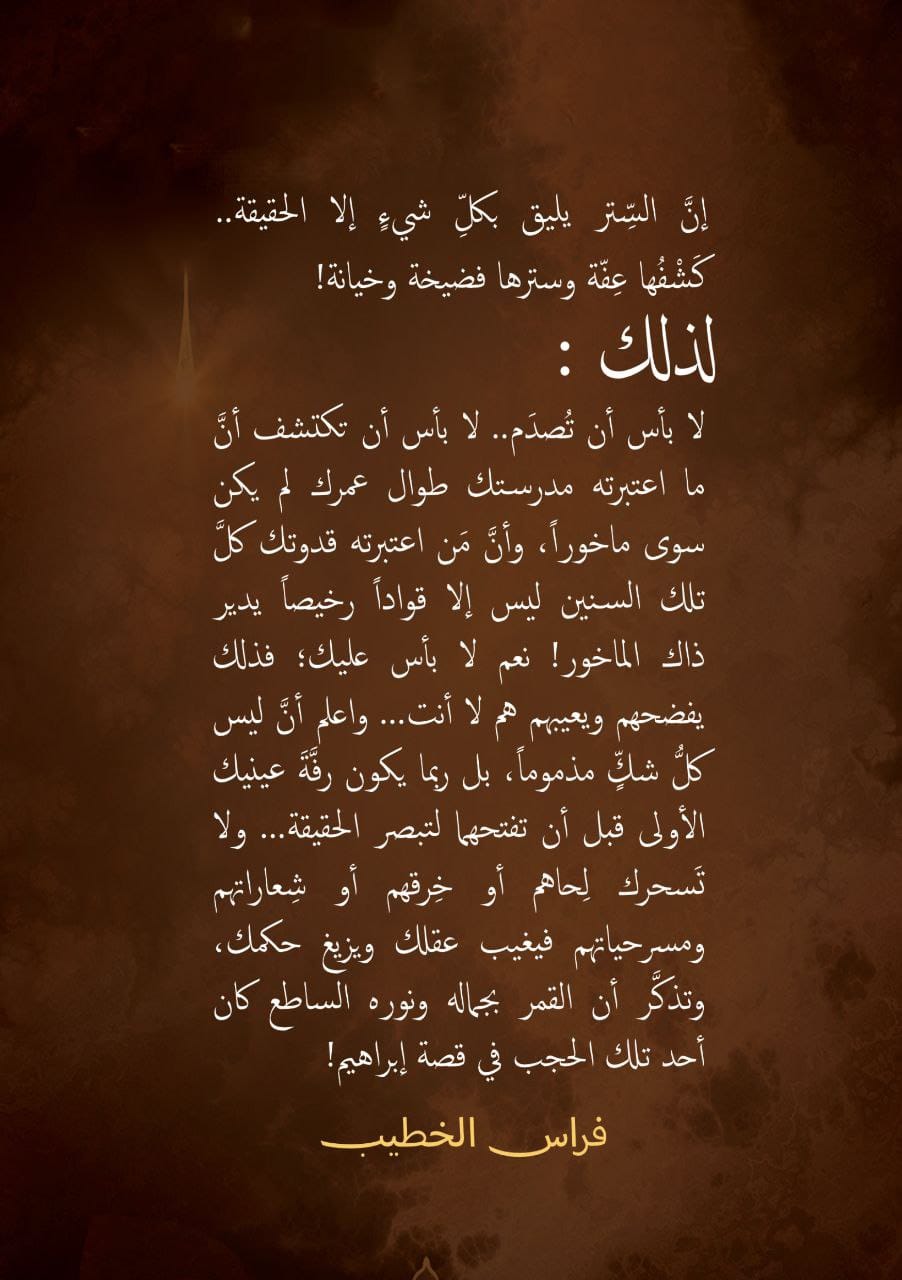 إنَّ السِّتر يليق بكلِّ شيءٍ إلا الحقيقة..
كَشْفُها عِفّة وسترها فضيخة وخيانة!
لذلك :
لا بأس أن تُصدَم.. لا بأس أن تكتشف أنَّ
ما اعتبرته مدرستك طوال عمرك لم يكن
سوى ماخوراً، وأنَّ مَن اعتبرته قدوتك كلَّ
تلك السنين ليس إلا قواداً رخيصاً يدير
ذاك الماخور! نعم لا بأس عليك؛ فذلك
يفضحهم ويعيبهم هم لا أنت... واعلم أنَّ ليس
كلُّ شكٍّ مذموماً، بل ربما يكون رفَّةَ عينيك
الأولى قبل أن تفتحهما لتبصر الحقيقة... ولا
تَسحرك لِحاهم أو خِرقهم أو شِعاراتهم
ومسرحياتهم فيغيب عقلك ويزيغ حكمك،
وتذكَّر أن القمر بجماله ونوره الساطع كان
أحد تلك الحجب في قصة إبراهيم!
فراس الخطيب